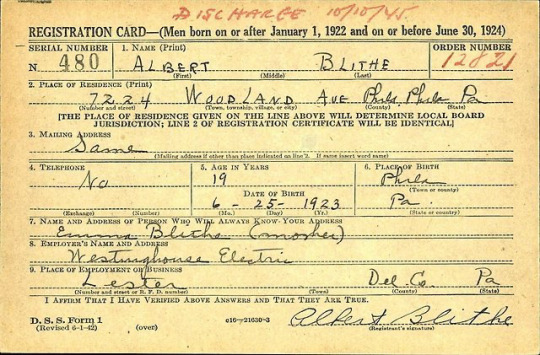 DISCHARGE 10/10/45
REGISTRATION CARD—(Men born on or after January 1, 1922 and on or before June 30, 1924)
SERIAL NUMBER 1. NAME (Print) ORDER NUMBER
N 480 ALBERT BLITHE 12821
(First) (Middle) (Last)
2. PLACE OF RESIDENCE (Print)
7224 WOODLAND AVE Phila. Phila Pa
(Number and street) (Town, township, village, or city) (County) (State)
[THE PLACE OF RESIDENCE GIVEN ON THE LINE ABOVE WILL DETERMINE LOCAL BOARD
JURISDICTION; LINE 2 OF REGISTRATION CERTIFICATE WILL BE IDENTICAL]
3. MAILING ADDRESS
Same
[Mailing address if other than place indicated on line 2. If same insert word same]
4. TELEPHONE 5. AGE IN YEARS 6. PLACE OF BIRTH
No 19 Phila
(Town or county)
DATE OF BIRTH
6-25-1923 Pa.
(Exchange) (Number) (Mo.) (Day) (Yr.) (State or country)
7. NAME AND ADDRESS OF PERSON WHO WILL ALWAYS KNOW YOUR ADDRESS
Emma Blithe (mother)
8. EMPLOYER'S NAME AND ADDRESS
Westinghouse Electric
9. PLACE OF EMPLOYMENT OR BUSINESS
Lester Del. Co. Pa
(Number and street or R. F. D. number) (Town) (County) (State)
I AFFIRM THAT I HAVE VERIFIED ABOVE ANSWERS AND THAT THEY ARE TRUE.
D. S. S. Form 1
(Revised 6-1-42) (over) c16—21630-3 Albert Blithe
(Registrant's signature)